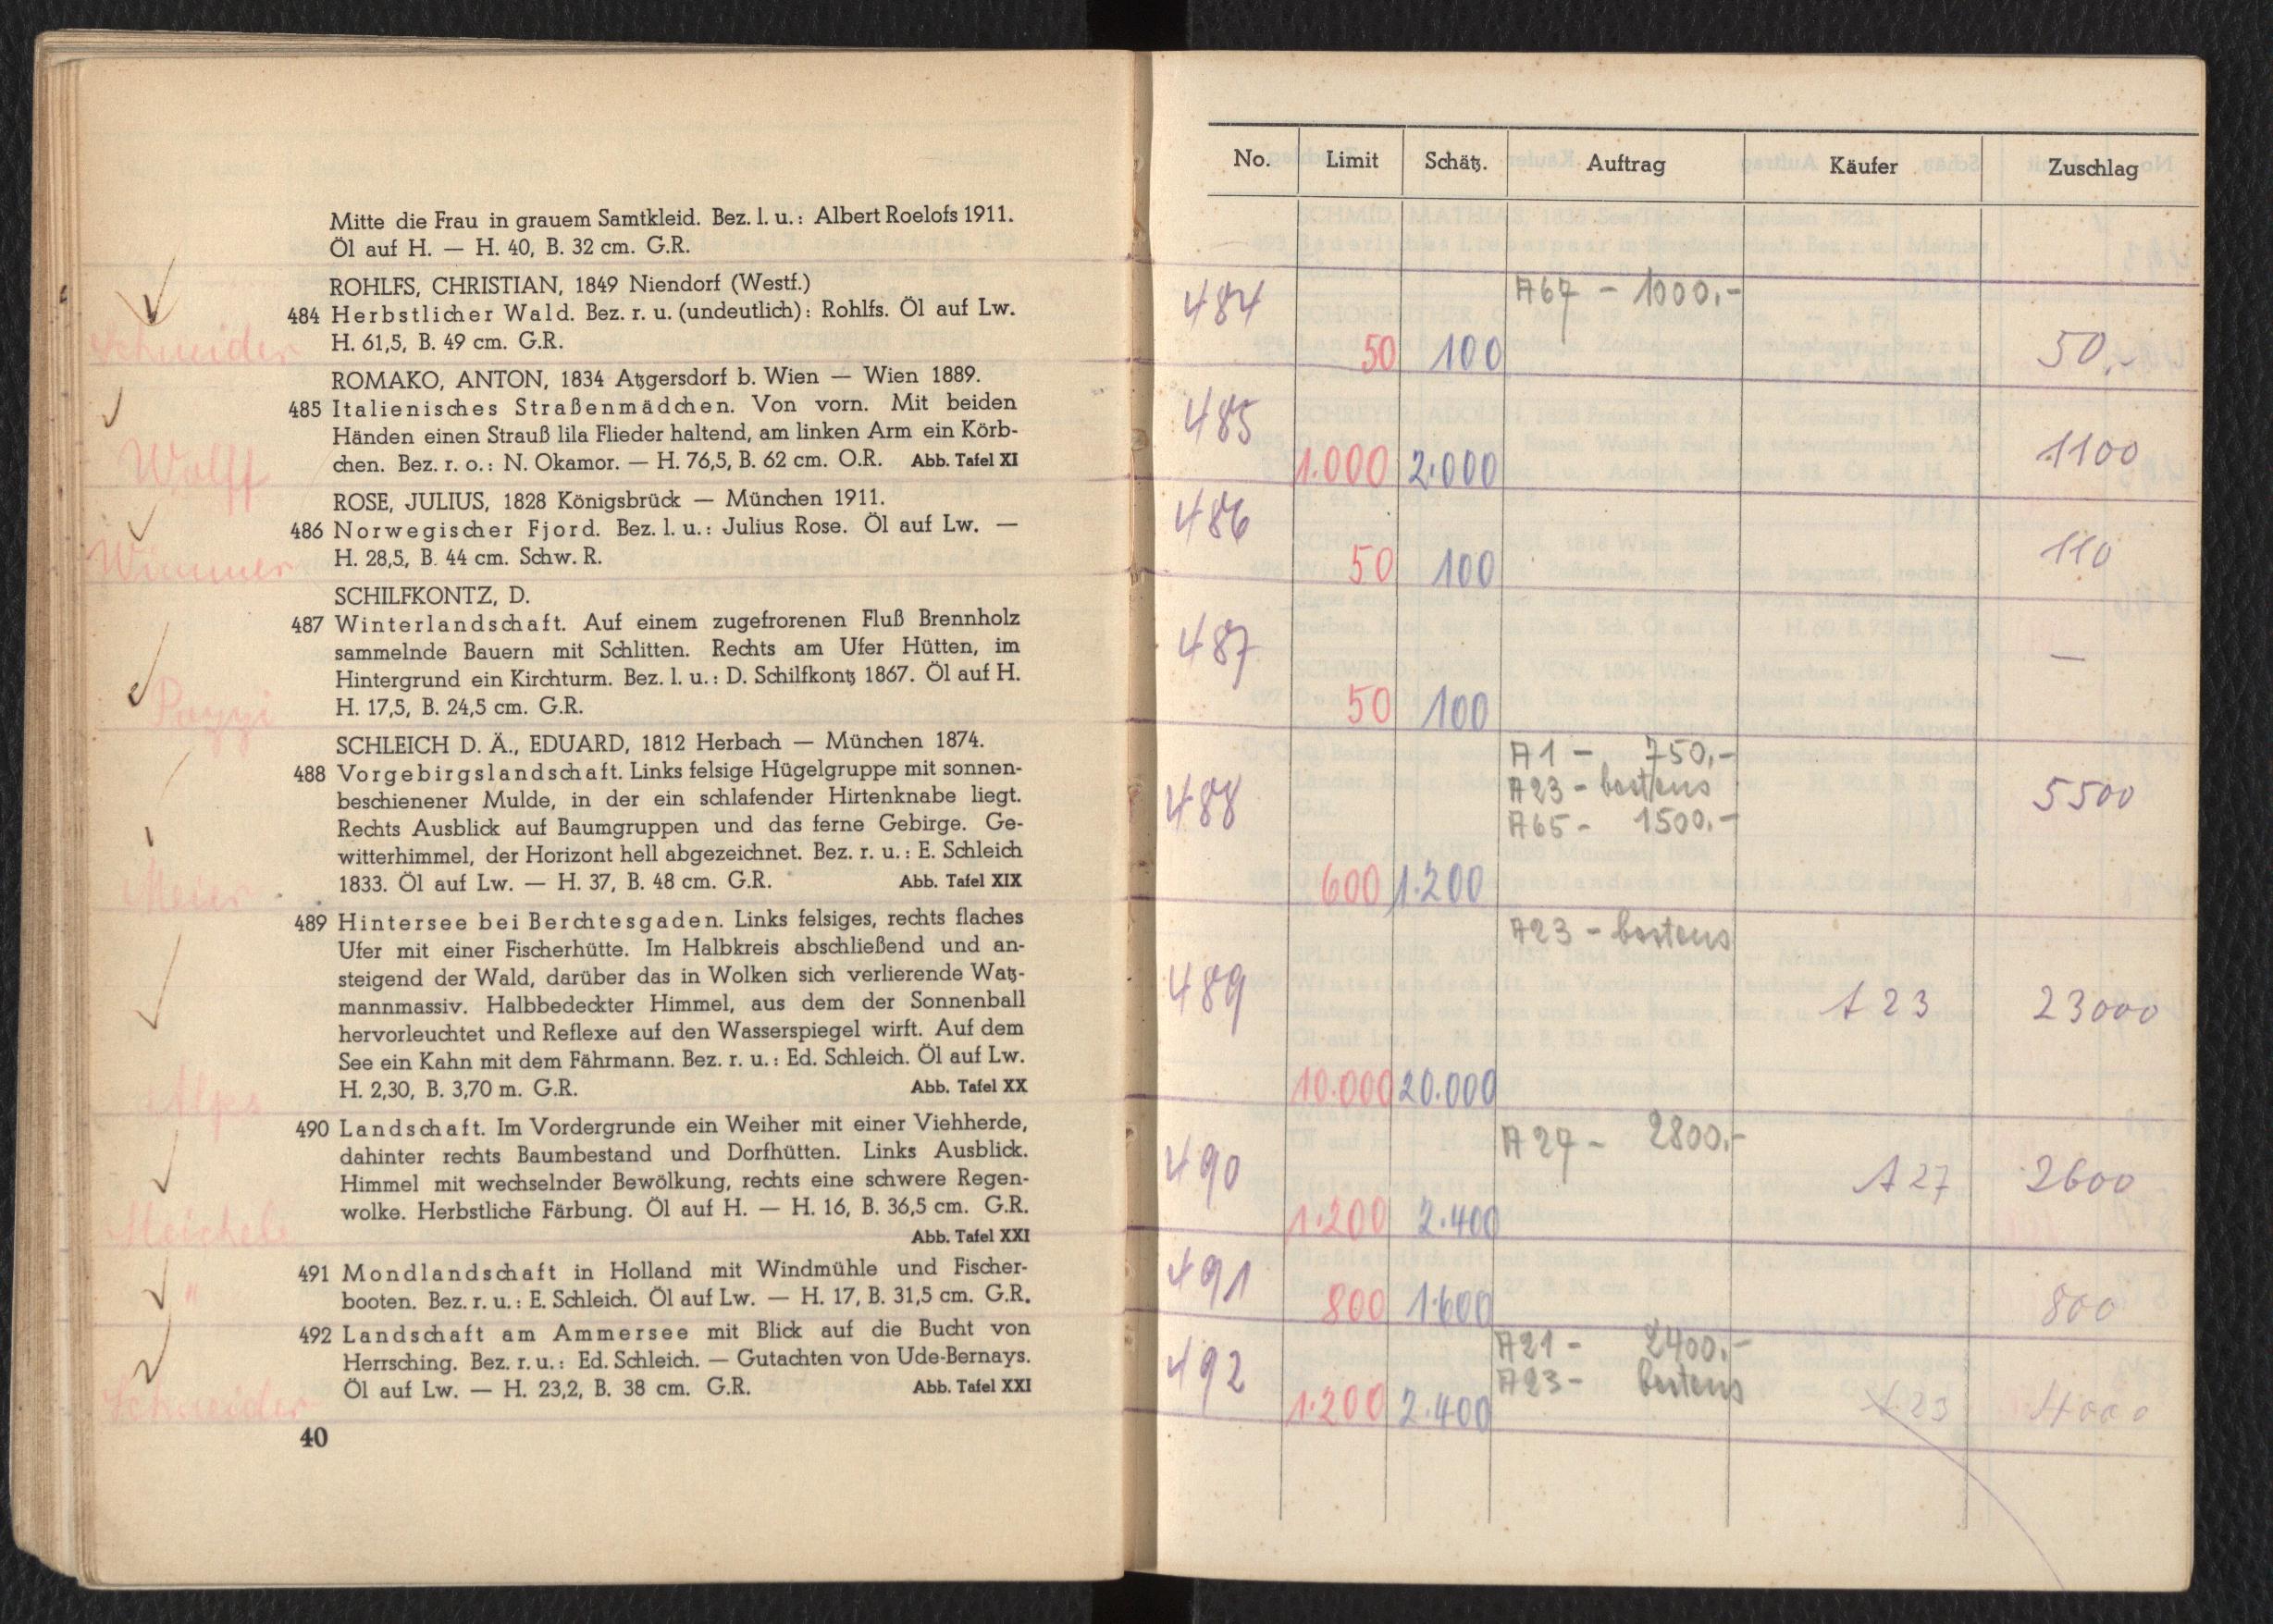 Mitte die Frau in grauem Samtkleid. Bez. l. u.: Albert Roelofs 1911.
Öl auf H. — H. 40, B. 32 cm. G.R.
ROHLFS, CHRISTIAN, 1849 Niendorf (Westf.)
484 Herbstlicher Wald. Bez. r. u. (undeutlich): Rohlfs. Öl auf Lw.
H. 61,5, B. 49 cm. G.R.
Schneider
ROMAKO, ANTON, 1834 Atzgersdorf b. Wien — Wien 1889.
485 Italienisches Straßenmädchen. Von vorn. Mit beiden
Händen einen Strauß lila Flieder haltend, am linken Arm ein Körb-
chen. Bez. r. o.: N. Okamor. — H. 76,5, B. 62 cm. O.R. Abb. Tafel XI
Wolff
ROSE, JULIUS, 1828 Königsbrück — München 1911.
486 Norwegischer Fjord. Bez. l. u.: Julius Rose. Öl auf Lw. —
H. 28,5, B. 44 cm. Schw. R.
Wimmer
SCHILFKONTZ, D.
487 Winterlandschaft. Auf einem zugefrorenen Fluß Brennholz
sammelnde Bauern mit Schlitten. Rechts am Ufer Hütten, im
Hintergrund ein Kirchturm. Bez. l. u.: D. Schilfkontz 1867. Öl auf H.
H. 17,5, B. 24,5 cm. G.R.
SCHLEICH D. Ä., EDUARD, 1812 Herbach — München 1874.
488 Vorgebirgslandschaft. Links felsige Hügelgruppe mit sonnen-
beschienener Mulde, in der ein schlafender Hirtenknabe liegt.
Rechts Ausblick auf Baumgruppen und das ferne Gebirge. Ge-
witterhimmel, der Horizont hell abgezeichnet. Bez. r. u.: E. Schleich
1833. Öl auf Lw. — H. 37, B. 48 cm. G.R. Abb. Tafel XIX
Meier
489 Hintersee bei Berchtesgaden. Links felsiges, rechts flaches
Ufer mit einer Fischerhütte. Im Halbkreis abschließend und an-
steigend der Wald, darüber das in Wolken sich verlierende Watz-
mannmassiv. Halbbedeckter Himmel, aus dem der Sonnenball
hervorleuchtet und Reflexe auf den Wasserspiegel wirft. Auf dem
See ein Kahn mit dem Fährmann. Bez. r. u.: Ed. Schleich. Öl auf Lw.
H. 2,30, B. 3,70 m. G.R. Abb. Tafel XX
490 Landschaft. Im Vordergrunde ein Weiher mit einer Viehherde,
dahinter rechts Baumbestand und Dorfhütten. Links Ausblick.
Himmel mit wechselnder Bewölkung, rechts eine schwere Regen-
wolke. Herbstliche Färbung. Öl auf H. — H. 16, B. 36,5 cm. G.R.
Abb. Tafel XXI
491 Mondlandschaft in Holland mit Windmühle und Fischer-
booten. Bez. r. u.: E. Schleich. Öl auf Lw. — H. 17, B. 31,5 cm. G.R.
"
492 Landschaft am Ammersee mit Blick auf die Bucht von
Herrsching. Bez. r. u.: Ed. Schleich. — Gutachten von Ude-Bernays.
Öl auf Lw. — H. 23,2, B. 38 cm. G.R. Abb. Tafel XXI
Schneider
40
No. Limit Schätz. Auftrag Käufer Zuschlag
484 A67 – 1000.-
50 100 50.-
485
1.000 2.000 1100
486
50 100 110
487 —
50 100
488 A1 – 750.-
A23 – bestens 5500
A65 – 1500.-
600 1.200
A23 – bestens
489 A 23 23000
10.000 20.000
490 A27 – 2800.-
A 27 2600
1.200 2.400
491
800 1600 800
492 A21 – 2400.-
A23 – bestens
1.200 2.400 A 23 4000